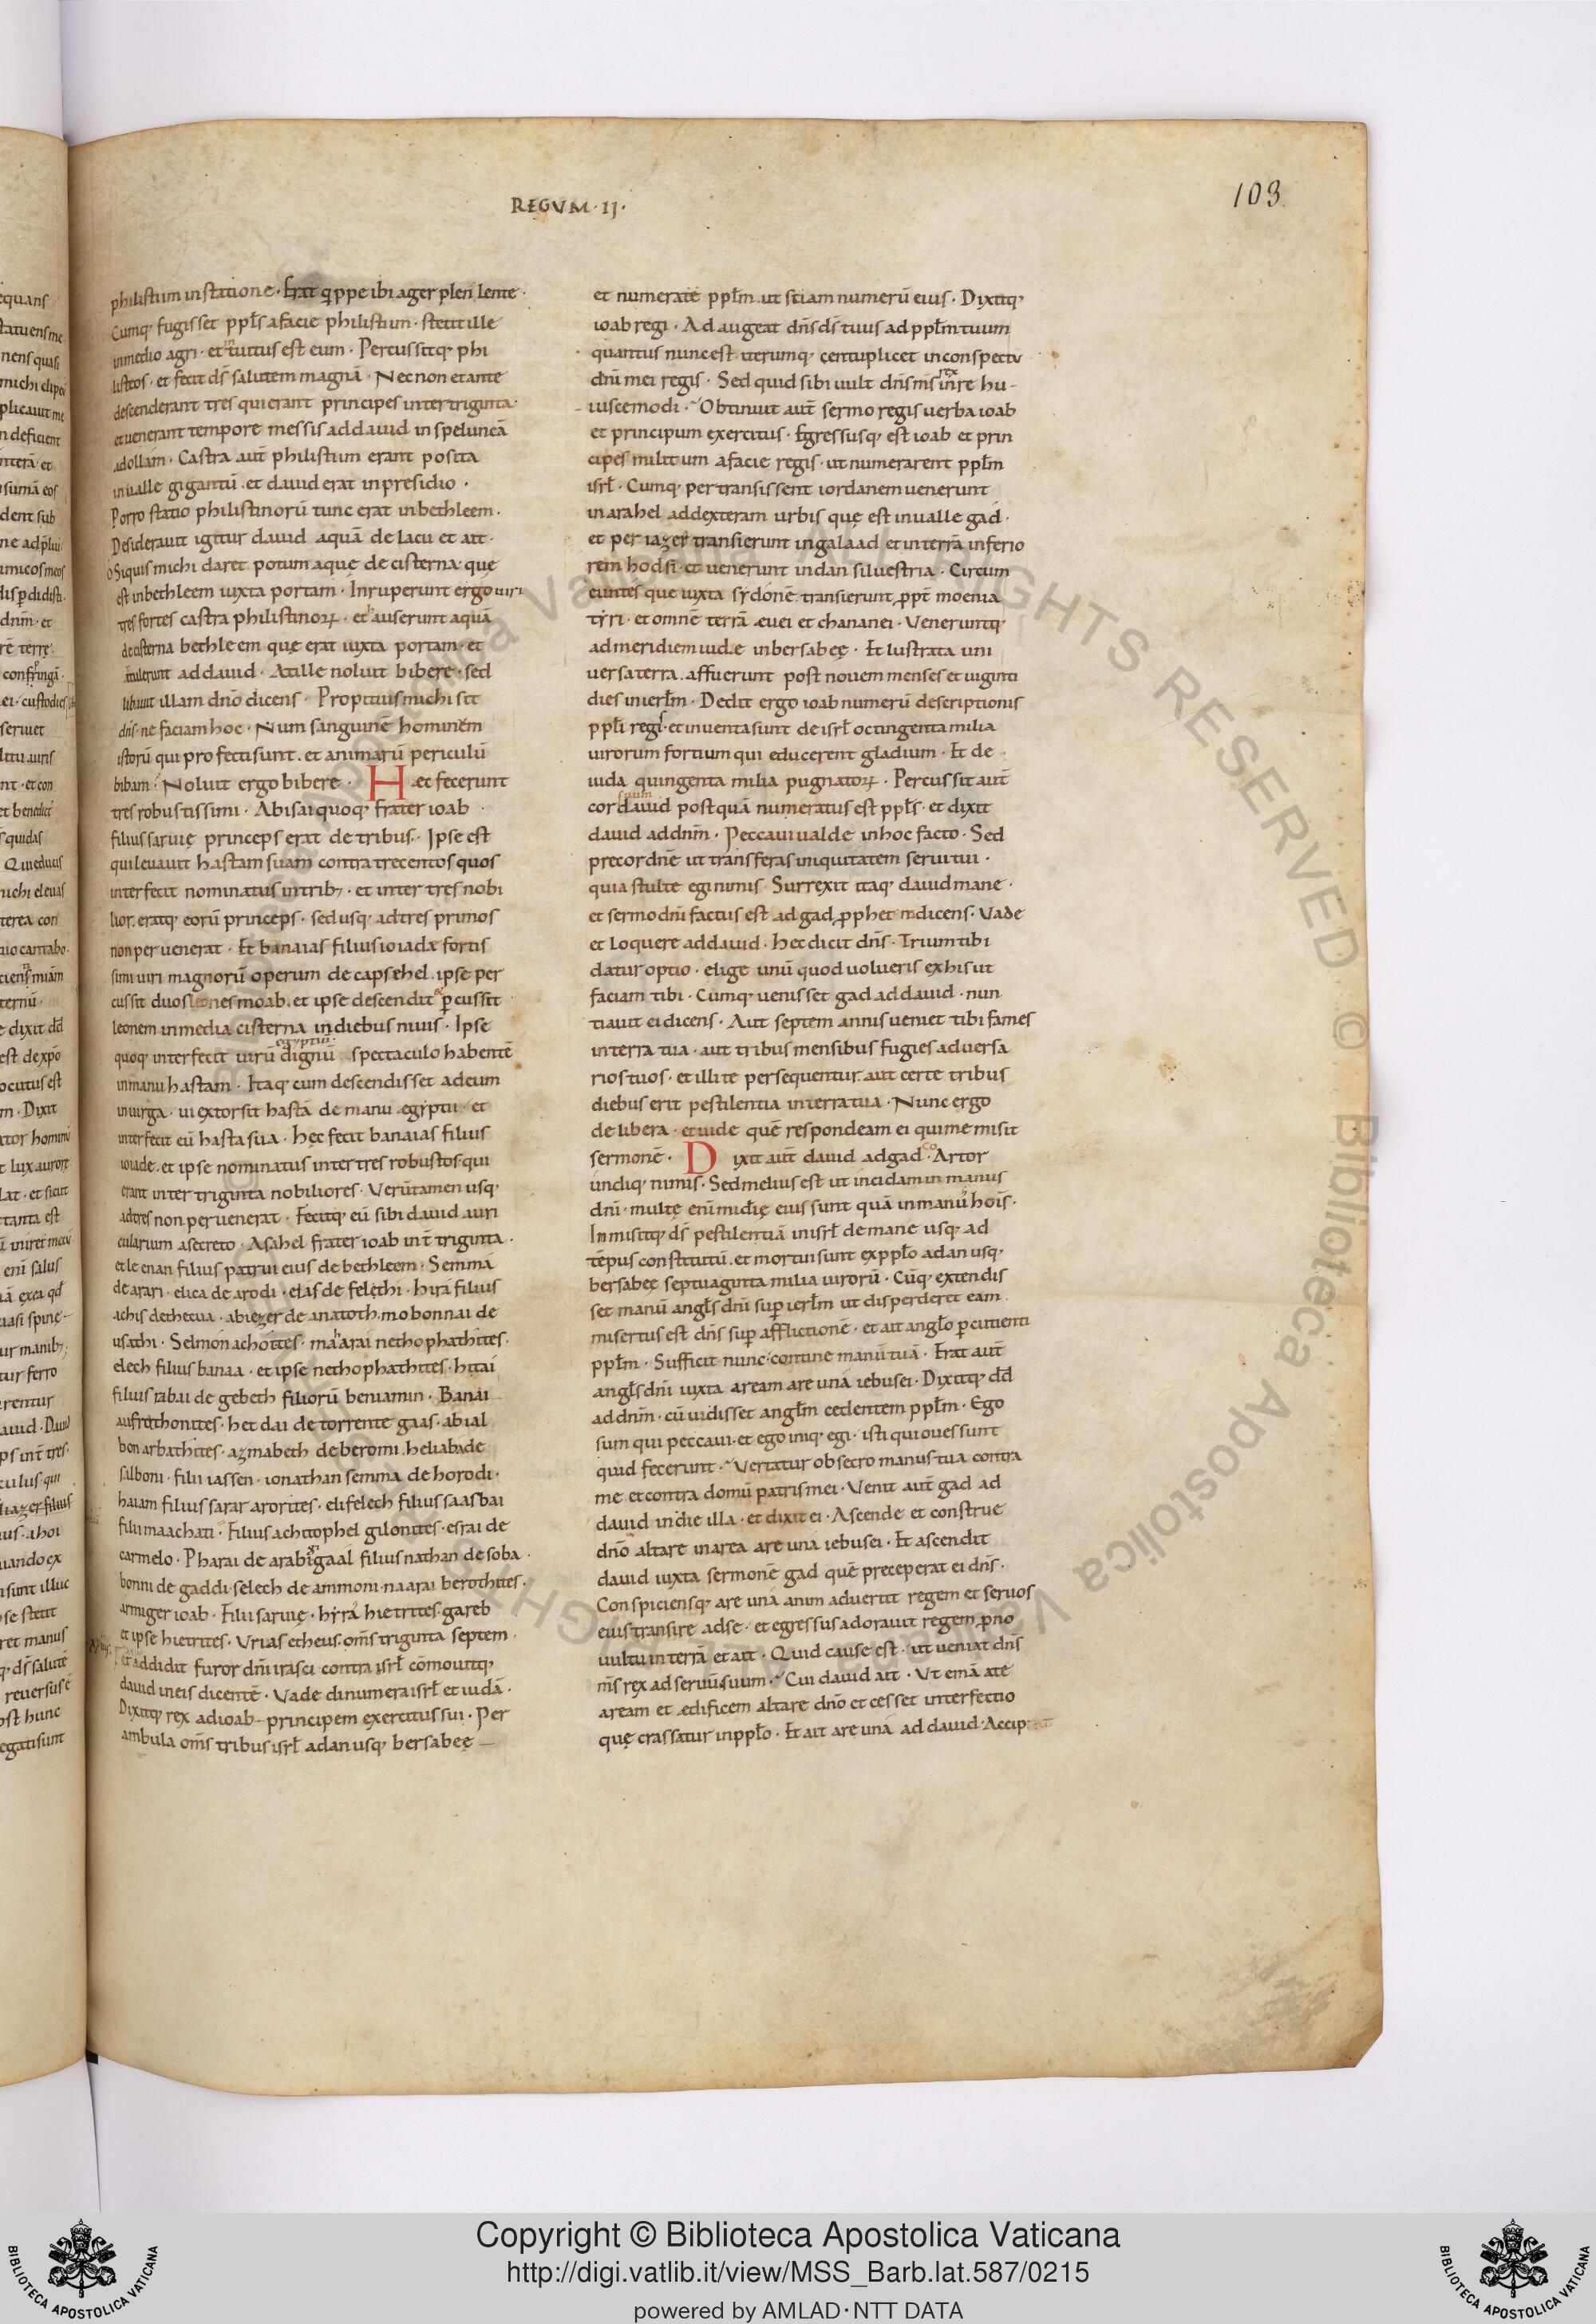 REGVM · II ·
103
philistiim in statione · Erat q̣ppe ibi ager plen' lente ·
Cumq; fugisset ppl̄s a facie philistiim · stetit ille
in medio agri · et tuitus est eum · Percussitq; phi
listeos · et fecit dS̄ salutem magnā · Nec non et ante
descenderant tres qui erant principes inter triginta ·
et uenerant tempore messis ad dauid in speluncā
adollam · Castra aut̄ philistiim erant posita
in ualle gigantū · et dauid erat in presidio ·
Porro statio philistinorū tunc erat in bethleem ·
Desiderauit igitur dauid aquā de lacu et ait ·
o Siquis michi daret potum aque de cisterna · que
est in bethleem iuxta portam · Inruperunt ergo uiri
tres fortes castra philistinoꝝ · et hauserunt aquā
de cisterna bethleem que erat iuxta portam · et
attulerunt ad dauid · At ille noluit bibere · sed
libauit illam dnō dicens · Propitius michi sit
dns̄ · ne faciam hoc · Num sanguinē hominēm
istorū qui profecti sunt · et animarū periculū
bibam · Noluit ergo bibere · Hæc fecerunt
tres robustissimi · Abisai quoq; frater ioab ·
filius saruię princeps erat de tribus · Ipse est
qui leuauit hastam suam contra trecentos quos
interfecit nominatus in trib; · et inter tres nobi
lior · eratq; eorū princeps · sed usq; ad tres primos
non peruenerat · Et banaias filius ioiadę fortis
simi uiri magnorū operum de capsehel · ipse per
cussit duos leones moab · et ipse descendit et ꝑcussit
leonem in media cisterna in diebus niuis · Ipse
quoq; interfecit uirū egyptiū dignū spectaculo habentē
in manu hastam · Itaq; cum descendisset ad eum
in uirga · ui extorsit hastā de manu ægyptii · et
interfecit eū hasta sua · hęc fecit banaias filius
ioiade · et ipse nominatus inter tres robustos qui
erant inter triginta nobiliores · Verūtamen usq;
ad tres non peruenerat · Fecitq; eū sibi dauid auri
cularium a secreto · Asahel frater ioab int̄ triginta ·
et leenan filius patrui eius de bethleem · Semma
de arari · elica de arodi · elas de felethi · hira filius
achis de thecua · abiezer de anatoth · mobonnai de
usathi · Selmon achotites · maharai nethophathites ·
elech filius banaa · et ipse nethophathites · hitai
filius rabai de gebeth filiorū beniamin · Banai
aufrathonites · heddai de torrente gaas · abial
bon arbathites · azmabeth de beromi · heliaba de
salboni · filii iassen · ionathan semma de horodi ·
haiam filius sarar arorites · elifelech filius saasbai
filii maachati · Filius achitophel gilonites · esrai de
carmelo · Pharai de arabi · igaal filius nathan de soba ·
bonni de gaddi · selech de ammoni · naarai berothites ·
armiger ioab · Filii saruię · hyra hietrites · gareb
et ipse hietrites · Vrias etheus · oms̄ triginta septem ·
et addidit furor dnī irasci contra isrł cōmouitq;
dauid in eis dicentē · Vade dinumera isrł et iudā ·
Dixitq; rex ad ioab principem exercitus sui · Per
ambula oms̄ tribus isrł a dan usq; bersabeę
et numerate pplm̄ · ut sciam numerū eius · Dixitq;
ioab regi · Adaugeat dns̄ ds̄ tuus ad pplm̄ tuum
quantus nunc est · iterumq; centuplicet in conspectu
dnī mei regis · Sed quid sibi uult dns̄ ms̄ rex in re hu-
iuscemodi · Obtinuit aut̄ sermo regis uerba ioab
et principum exercitus · Egressusq; est ioab et prin
cipes militum a facie regis · ut numerarent pplm̄
isrł · Cumq; pertransissent iordanem uenerunt
in arahel ad dexteram urbis quę est in ualle gad ·
et per iazer transierunt in galaad et in terrā inferio
rem hodsi · et uenerunt in dan siluestria · Circum
euntes que iuxta sydonē · transierunt ꝓpt̄ moenia
tyri · et omnē terrā æuei et chananei · Veneruntq;
ad meridiem iude in bersabeę · Et lustrata uni
uersa terra · affuerunt post nouem menses et uiginti
dies in ierlm̄ · Dedit ergo ioab numerū descriptionis
ppli̅ regi · et inuenta sunt de isrł octingenta milia
uirorum fortium qui educerent gladium · Et de
iuda quingenta milia pugnatoꝝ · Percussit aut̄
cor suum dauid postquā numeratus est ppl̄s · et dixit
dauid ad dnm̄ · Peccaui ualde in hoc facto · Sed
precor dnē ut transferas iniquitatem serui tui ·
quia stulte egi nimis · Surrexit itaq; dauid mane ·
et sermo dnī factus est ad gad ꝓphetā dicens · Vade
et loquere ad dauid · hec dicit dns̄ · Trium tibi
datur optio · elige unū quod uolueris ex his ut
faciam tibi · Cumq; uenisset gad ad dauid · nun
tiauit ei dicens · Aut septem annis ueniet tibi fames
in terra tua · aut tribus mensibus fugies aduersa
rios tuos · et illi te persequentur · aut certe tribus
diebus erit pestilentia in terra tua · Nunc ergo
delibera · et uide quē respondeam ei qui me misit
sermonē · Dixit aut̄ dauid ad gad · coArtor
undiq; nimis · Sed melius est ut incidam in manus
dnī · multę enī mīdię eius sunt quā in manu hoīs ·
Inmisitq; ds̄ pestilentiā in isrł de mane usq; ad
tēpus constitutū · et mortui sunt ex pplo̅ a dan usq;
bersabeę septuaginta milia uirorū · Cūq; extendis
set manū angl̄s dnī suꝑ ierlm̄ ut disperderet eam ·
misertus est dns̄ suꝑ afflictionē · et ait anglo̅ ꝑcutienti
pplm̄ · Sufficit nunc · contine manū tuā · Erat aut̄
angl̄s dnī iuxta aream areuna iebusei · Dixitq; dd̄
ad dnm̄ · cū uidisset anglm̄ cedentem pplm̄ · Ego
sum qui peccaui · et ego iniq; egi · isti qui oues sunt
quid fecerunt · Vertatur obsecro manus tua contra
me et contra domū patris mei · Venit aut̄ gad ad
dauid in die illa · et dixit ei · Ascende et construe
dnō altare in area areuna iebusei · Et ascendit
dauid iuxta sermonē gad quē preceperat ei dns̄ ·
Conspiciensq; areuna animaduertit regem et seruos
eius transire ad se · et egressus adorauit regem ꝓno
uultu in terrā et ait · Quid cause est · ut ueniat dns̄
ms̄ rex ad seruū suum · Cui dauid ait · Vt emā a te
aream et ædificem altare dnō et cesset interfectio
quę crassatur in pplo̅ · Et ait areuna ad dauid · Accip
Copyright © Biblioteca Apostolica Vaticana
http://digi.vatlib.it/view/MSS_Barb.lat.587/0215
powered by AMLAD·NTT DATA
BIBLIOTECA APOSTOLICA VATICANA
BIBLIOTECA APOSTOLICA VATICANA